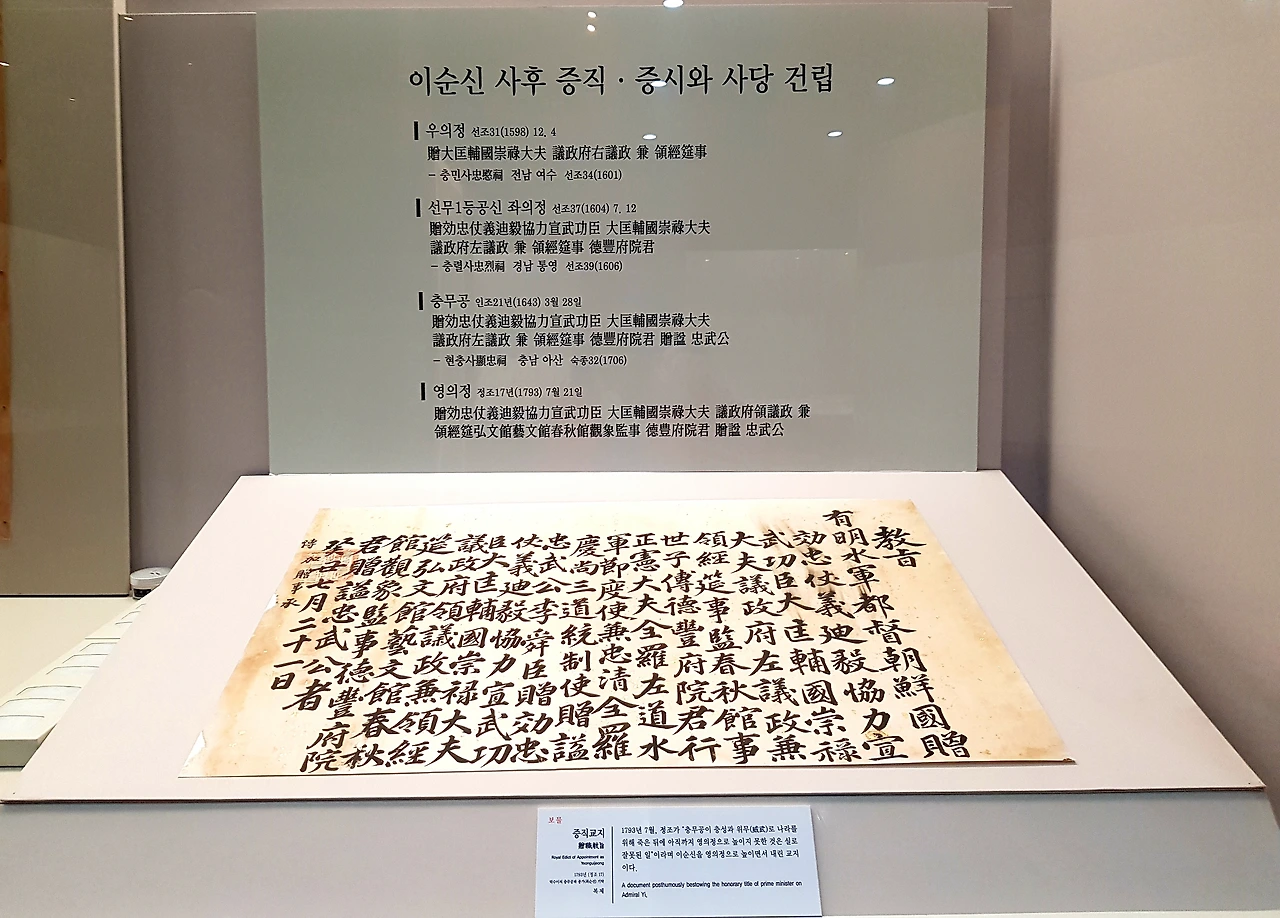 이순신 사후 증직 · 증시와 사당 건립
우의정 선조31(1598) 12. 4
贈大匡輔國崇祿大夫 議政府右議政 兼 領經筵事
- 충민사忠愍祠 전남 여수 선조34(1601)
선무1등공신 좌의정 선조37(1604) 7. 12
贈効忠仗義迪毅協力宣武功臣 大匡輔國崇祿大夫
議政府左議政 兼 領經筵事 德豐府院君
- 충렬사忠烈祠 경남 통영 선조39(1606)
충무공 인조21년(1643) 3월 28일
贈効忠仗義迪毅協力宣武功臣 大匡輔國崇祿大夫
議政府左議政 兼 領經筵事 德豐府院君 贈諡 忠武公
- 현충사顯忠祠 충남 아산 숙종32(1706)
영의정 정조17년(1793) 7월 21일
贈効忠仗義迪毅協力宣武功臣 大匡輔國崇祿大夫 議政府領議政 兼
領經筵弘文館藝文館春秋館觀象監事 德豐府院君 贈諡 忠武公
教旨
有明水軍都督朝鮮國贈
効忠仗義迪毅協力宣
武功臣大匡輔國崇祿
大夫議政府左議政兼
領經筵事監春秋館事
世子傅德豐府院君行
正憲大夫全羅左道水
軍節度使兼忠清全羅
慶尚三道統制使贈諡
忠武公李舜臣贈効忠
仗義迪毅協力宣武功
臣大匡輔國崇祿大夫
議政府領議政兼領經
筵弘文館藝文館春秋
館觀象監事德豐府院
君贈諡忠武公者
癸丑七月二十一日
보물
증직교지
贈職敎旨
Royal Edict of Appointment as
Yeonguijeong
1793년 (정조 17)
복제
1793년 7월, 정조가 "충무공이 충성과 위무(威武)로 나라를
위해 죽은 뒤에 아직까지 영의정으로 높이지 못한 것은 실로
잘못된 일"이라며 이순신을 영의정으로 높이면서 내린 교지
이다.
A document posthumously bestowing the honorary title of prime minister on
Admiral Yi.